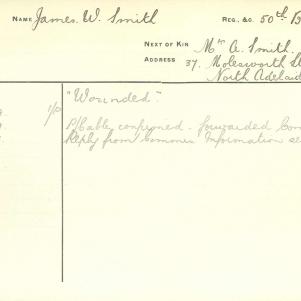 NAME James. W. Smith REG. &C. 50th B
NEXT OF KIN Mrs A. Smith.
ADDRESS 37. Molesworth St
North Adelaid
"Wounded".
P/Cable confirmed. forwarded Com
Reply from Commrs Information se